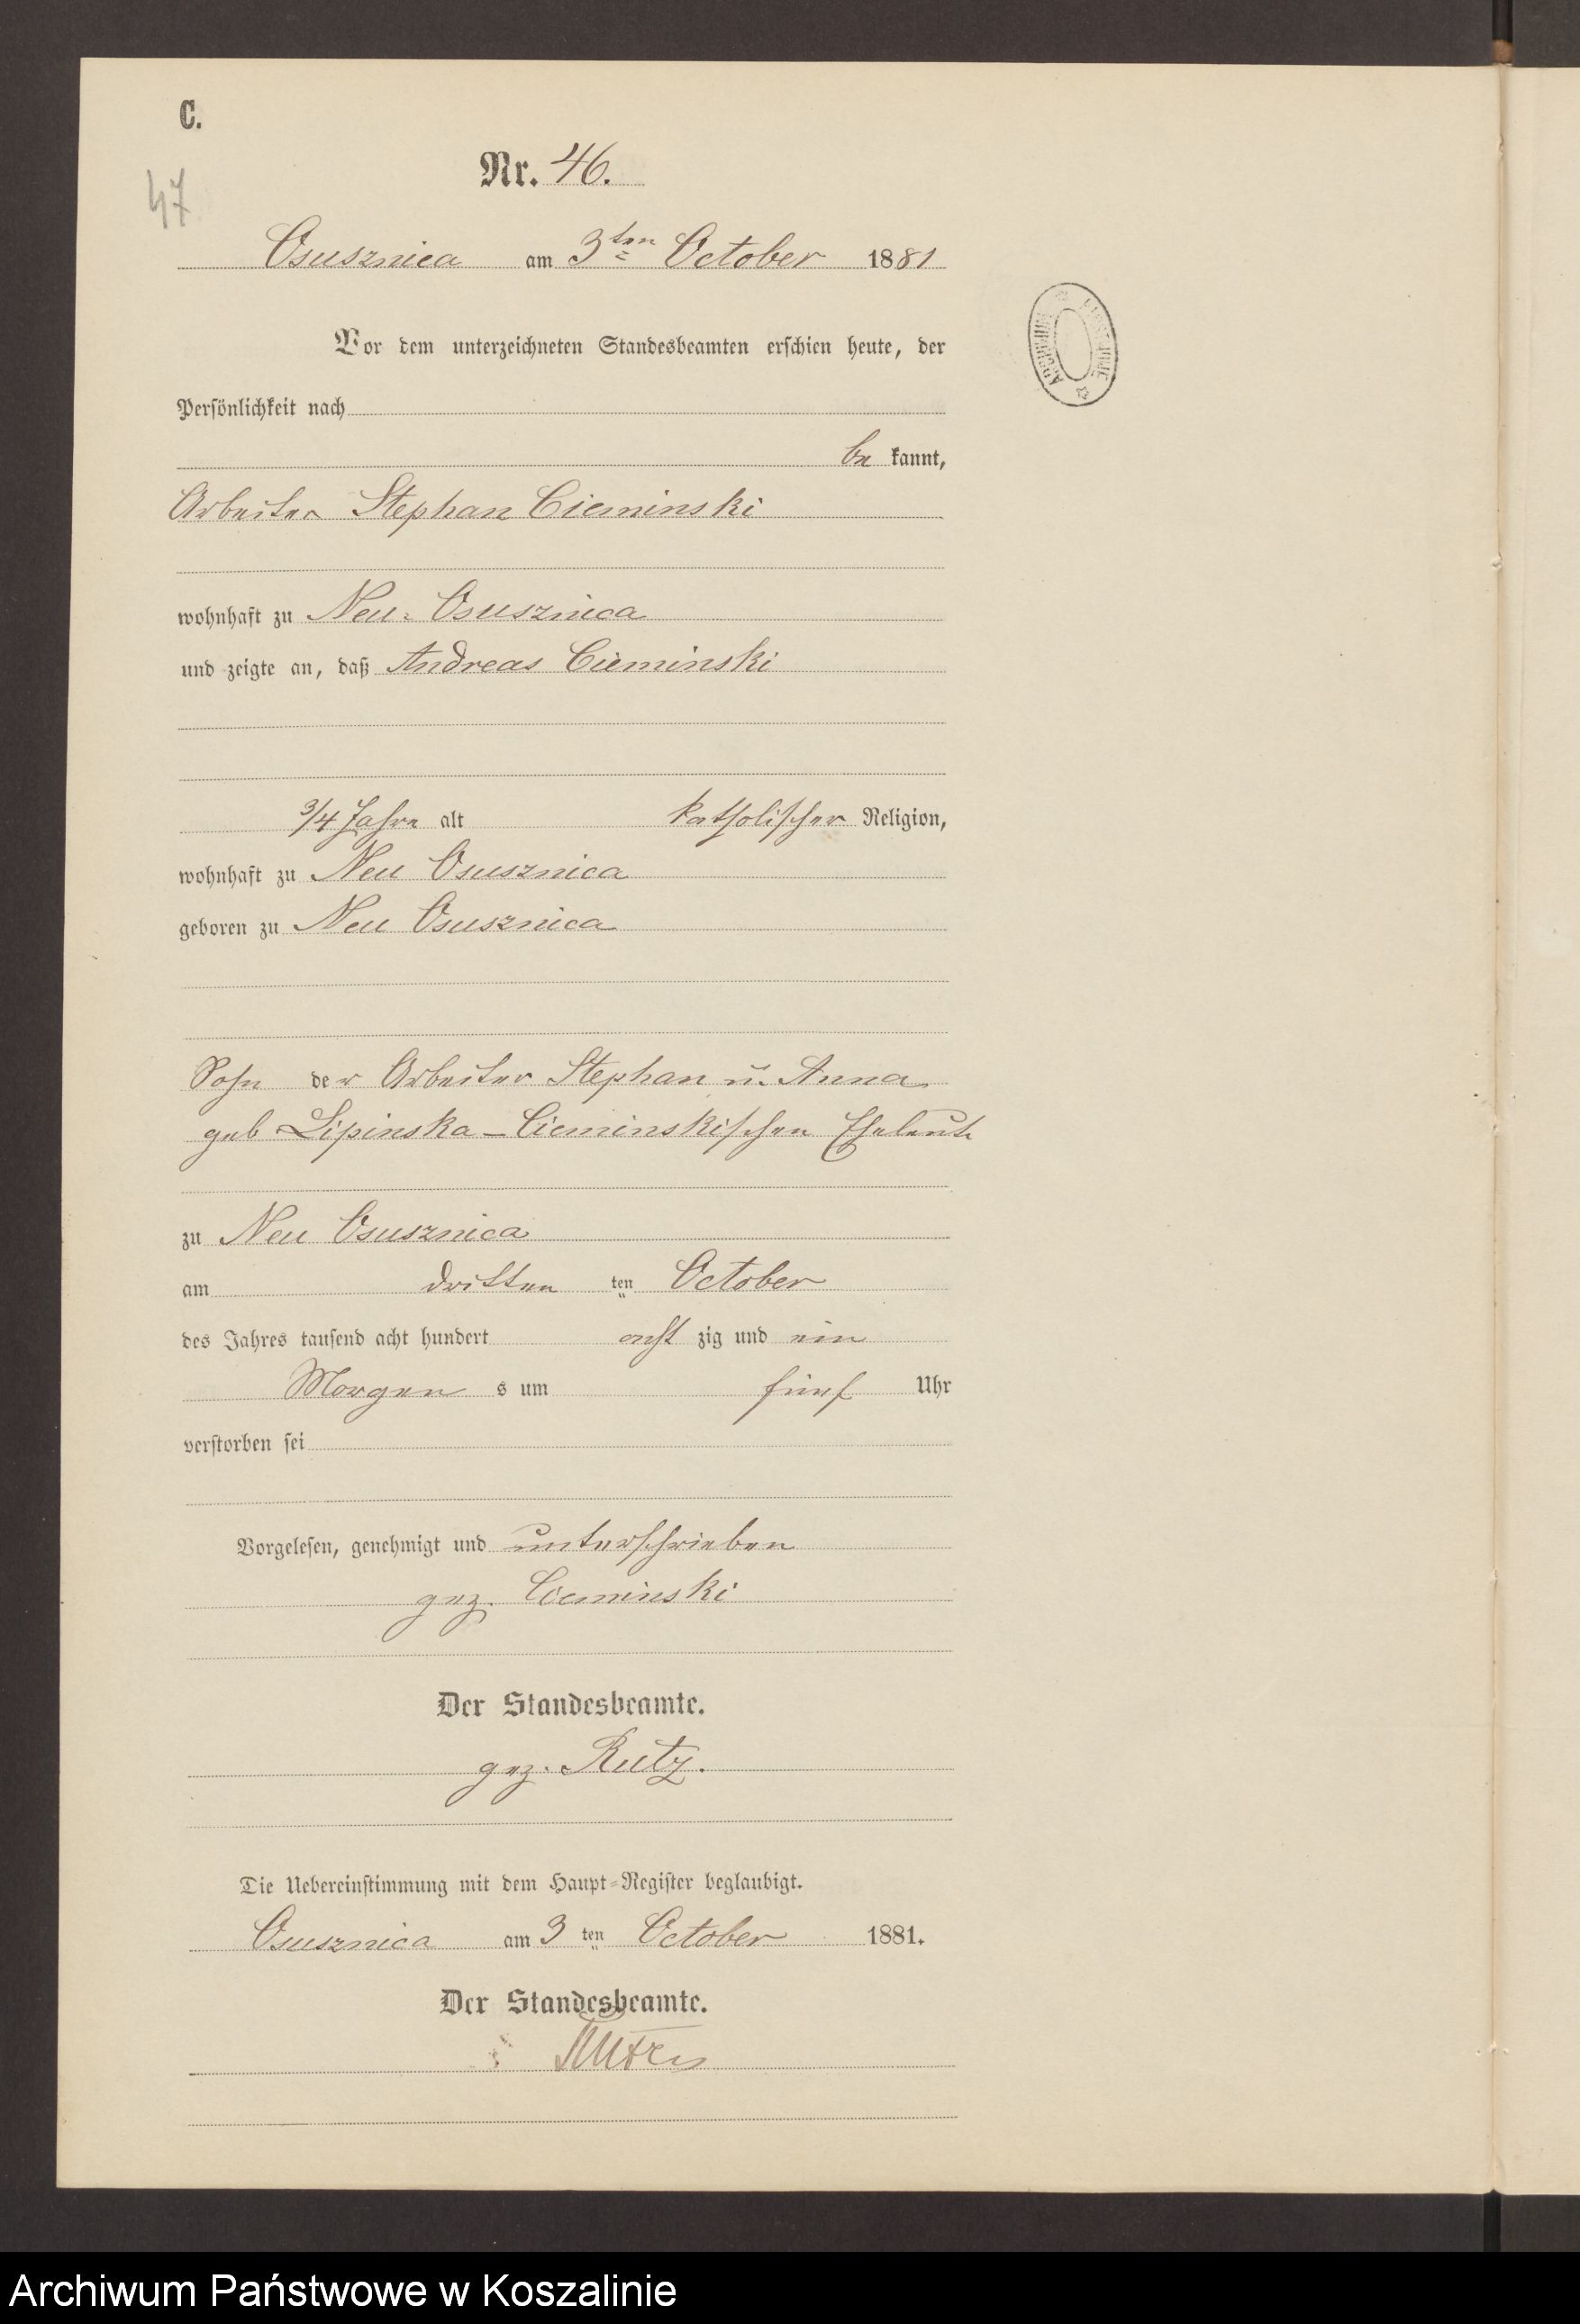 C.
Nr. 46.
47
Osusznica am 3ten October 1881
Vor dem unterzeichneten Standesbeamten erschien heute, der
Persönlichkeit nach
be kannt,
Arbeiter Stephan Cieminski
wohnhaft zu Neu-Osusznica
und zeigte an, daß Andreas Cieminski
3/4 Jahre alt katholischer Religion,
wohnhaft zu Neu Osusznica
geboren zu Neu Osusznica
Sohn der Arbeiter Stephan u. Anna
geb Lipinska-Cieminskischen Eheleute
zu Neu Osusznica
am dritten ten October
des Jahres tausend acht hundert acht zig und ein
Morgen s um fünf Uhr
verstorben sei
Vorgelesen, genehmigt und unterschrieben
gez. Cieminski
Der Standesbeamte.
gez. Rutz.
Die Uebereinstimmung mit dem Haupt-Register beglaubigt.
Osusznica am 3 ten October 1881.
Der Standesbeamte.
Archiwum Państwowe w Koszalinie